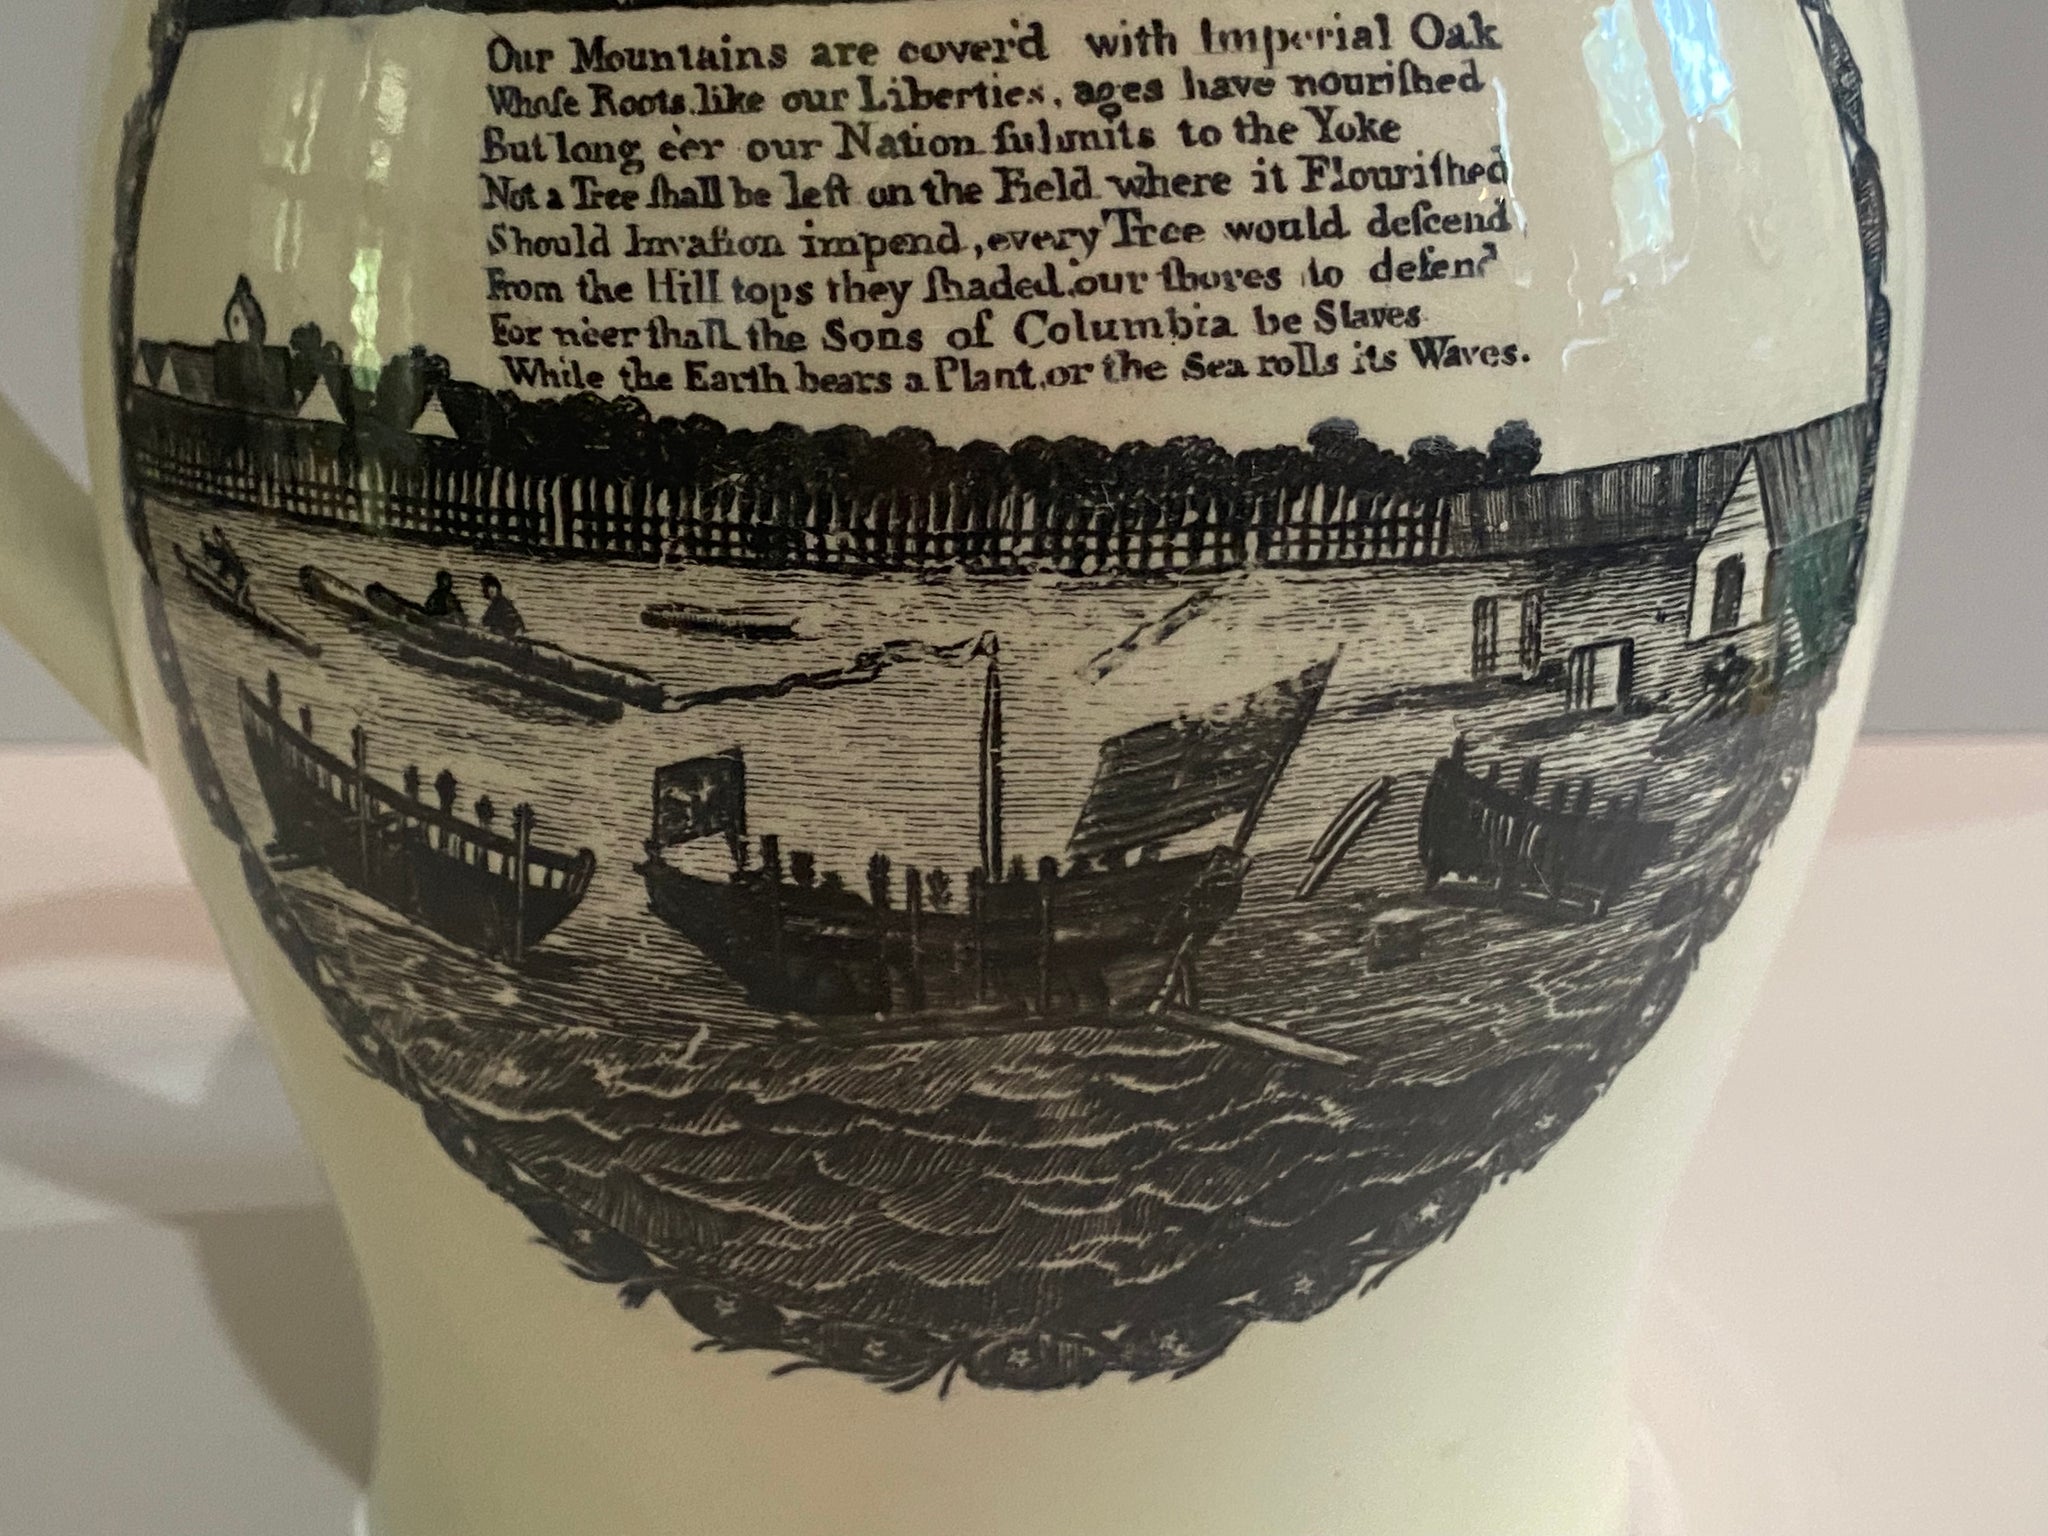 Our Mountains are cover'd with Imperial Oak
Whoſe Roots, like our Liberties, ages have nouriſhed
But long e'er our Nation ſubmits to the Yoke
Not a Tree ſhall be left on the Field where it Flouriſhed
Should Invaſion impend, every Tree would deſcend
From the Hill tops they ſhaded our ſhores to defend
For ne'er ſhall the Sons of Columbia be Slaves
While the Earth bears a Plant, or the Sea rolls its Waves.